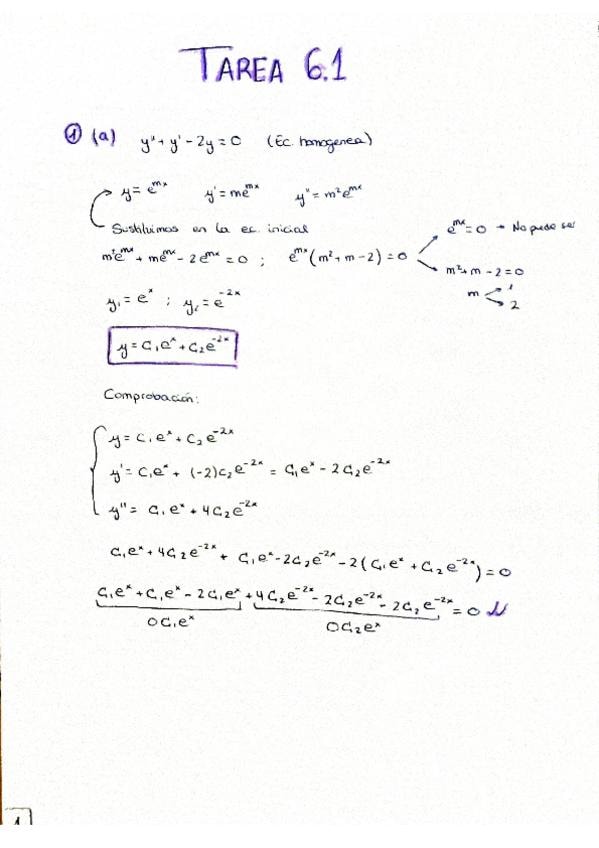 TAREA 6.1
① (a) y'' + y' - 2y = 0 (Ec. homogenea)
y = e^{mx} y' = me^{mx} y'' = m²e^{mx}
Sustituimos en la ec. inicial
e^{mx} = 0 → No puede ser
m²e^{mx} + me^{mx} - 2e^{mx} = 0 ; e^{mx}(m² + m - 2) = 0
m² + m - 2 = 0
m 1
2
y₁ = e^x ; y₂ = e^{-2x}
y = C₁e^x + C₂e^{-2x}
Comprobación:
y = C₁e^x + C₂e^{-2x}
y' = C₁e^x + (-2)C₂e^{-2x} = C₁e^x - 2C₂e^{-2x}
y'' = C₁e^x + 4C₂e^{-2x}
C₁e^x + 4C₂e^{-2x} + C₁e^x - 2C₂e^{-2x} - 2(C₁e^x + C₂e^{-2x}) = 0
C₁e^x + C₁e^x - 2C₁e^x + 4C₂e^{-2x} - 2C₂e^{-2x} - 2C₂e^{-2x} = 0
0C₁e^x 0C₂e^x
1